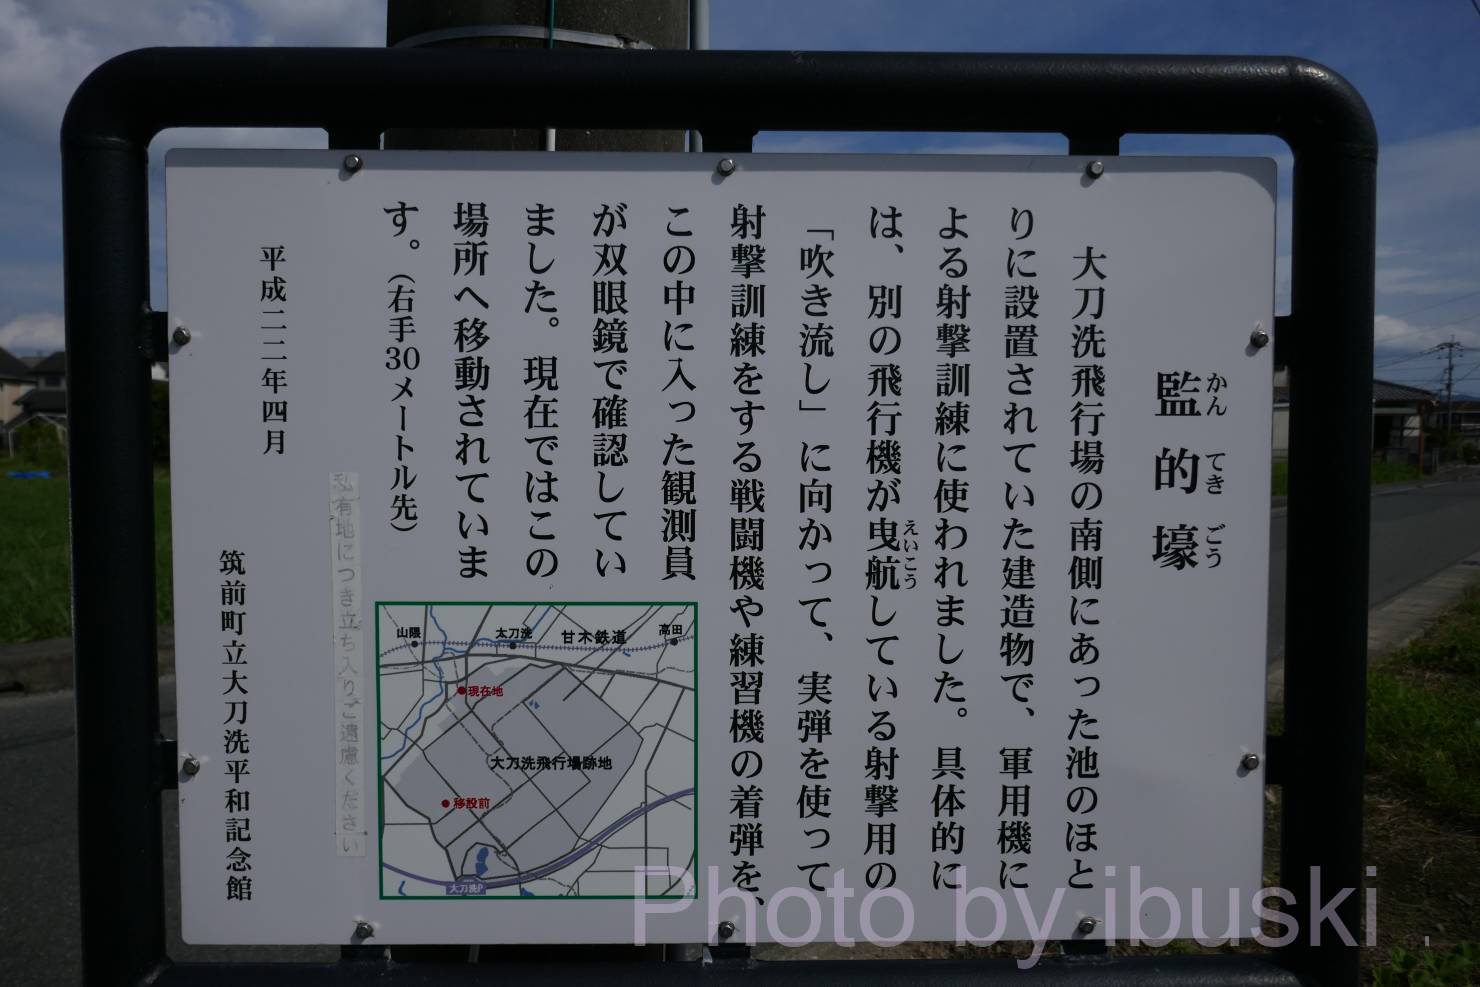 監的壕
かん てき ごう
大刀洗飛行場の南側にあった池のほと
りに設置されていた建造物で、軍用機に
よる射撃訓練に使われました。具体的に
は、別の飛行機が曳航している射撃用の
えいこう
「吹き流し」に向かって、実弾を使って
射撃訓練をする戦闘機や練習機の着弾を、
この中に入った観測員
が双眼鏡で確認してい
ました。現在ではこの
場所へ移動されていま
す。（右手30メートル先）
私有地につき立ち入りご遠慮ください
平成二二年四月
筑前町立大刀洗平和記念館
山隈
太刀洗
甘木鉄道
高田
現在地
大刀洗飛行場跡地
移設前
大刀洗P
Photo by ibuski